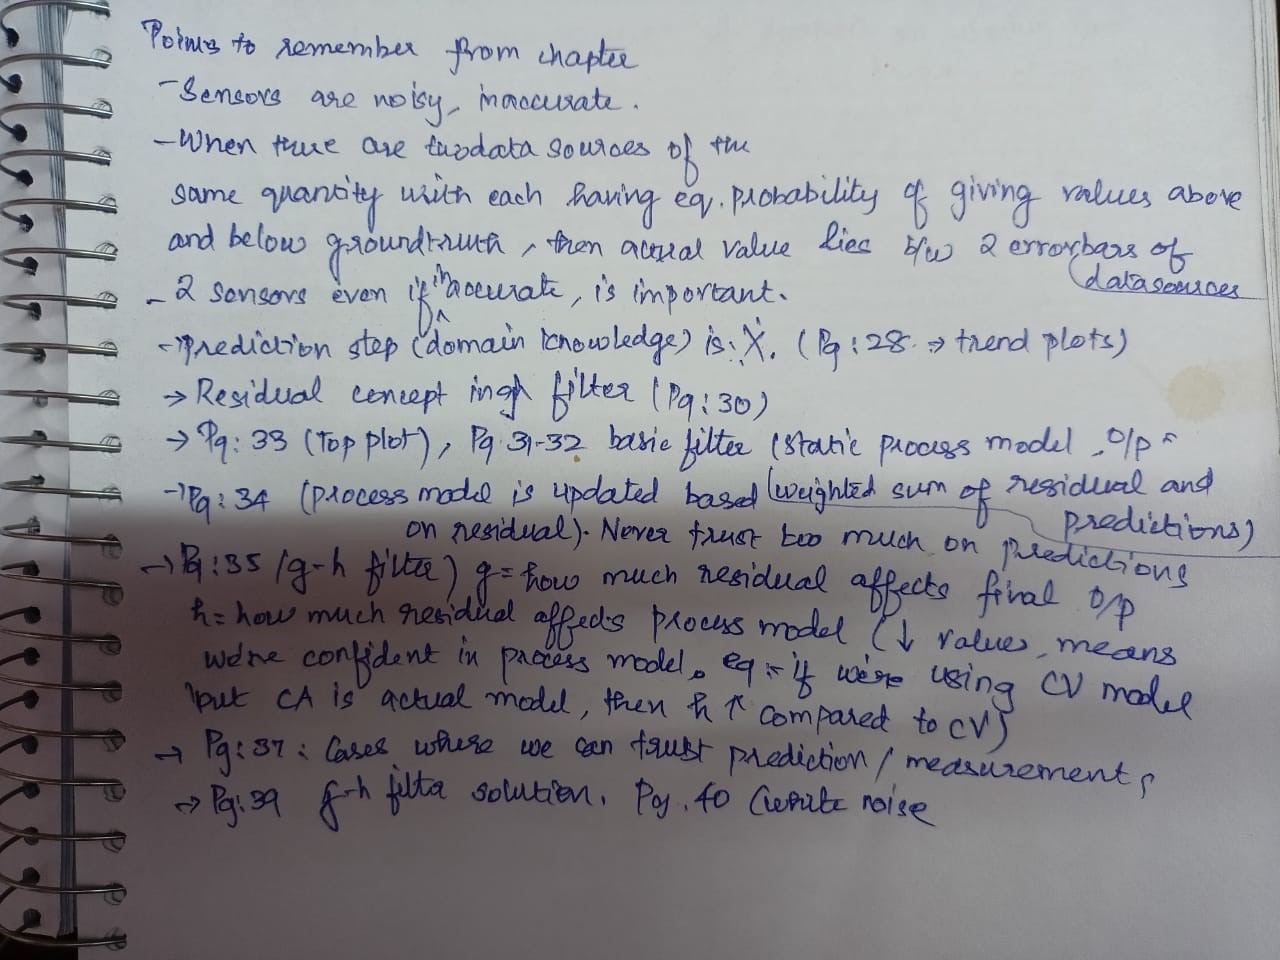 Points to remember from chapter
- Sensors are noisy, inaccurate.
- When there are two data sources of the
same quantity with each having eq. probability of giving values above
and below groundtruth, then actual value lies b/w 2 errorbars of
datasources
- 2 sensors even if inaccurate, is important.
- prediction step (domain knowledge) is: (Pg: 28 → trend plots)
→ Residual concept in gh filter (Pg: 30)
→ Pg: 33 (Top plot), Pg 31-32 basic filter (static process model, o/p =
→ Pg: 34 (process model is updated based (weighted sum of residual and
predictions)
on residual). Never trust too much on predictions
→ Pg: 35 (g-h filter) g = how much residual affects final o/p
h = how much residual affects process model (↓ value, means
we're confident in process model. eg:- if we're using CV model
but CA is actual model, then h ↑ compared to CV)
→ Pg: 37: Cases where we can trust prediction / measurement,
→ Pg: 39 g-h filter solution. Pg. 40 (white noise